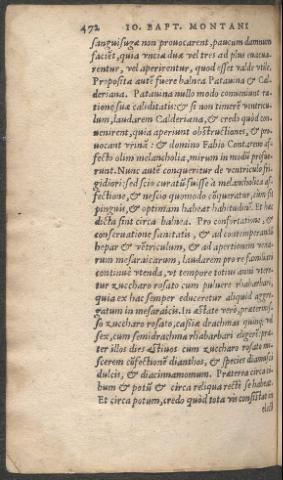 472 IO. BAPT. MONTANI
sanguisugæ non provocarent, paucum damnum
faciēt, quia vnciæ duæ vel tres ad plus euacua-
rentur, vel aperirentur, quod esset valde vtile.
Propositæ autē fuere balnea Patauina & Cal-
deriana. Patauina nullo modo conueniunt ra-
tione suæ caliditatis: & si non timerē ventricu-
lum, laudarem Calderiana, & credo quòd con-
uenirent, quia aperiunt obstructiones, & pro-
uocant vrinā: & domino Fabio Contareno af-
fecto olim melancholia, mirum in modū profue-
runt. Nunc autē conqueritur de ventriculo fri-
gidiori: sed scio curatū fuisse à melancholica af-
fectione, & nescio quomodo cōqueratur, cùm sit
pinguis, & optimam habeat habitudinē. Et hæc
dicta sint circa balnea. Pro confortatione, &
conseruatione sanitatis, & ad contemperandū
hepar & vētriculum, & ad apertionem vena-
rum mesaraicarum, laudarem pro re familiari
continuè vtenda, vt tempore totius anni vtere-
tur zuccharo rosato cum puluere rhabarbari,
quia ex hac semper educeretur aliquid aggre-
gatum in mesaraicis. In æstate verò, præter
so zuccharo rosato, casiæ drachmas quinq; vel
sex, cum semidrachma rhabarbari eligeret: præ-
ter illos dies æstiuos cum zuccharo rosato mi-
scerem cōfectionē dianthos, & species diamusci
dulcis, & diacinnamomum. Præterea circa ci-
bum & potū & circa reliqua rectè se habeat.
Et circa potum, credo quòd tota vis consistat in